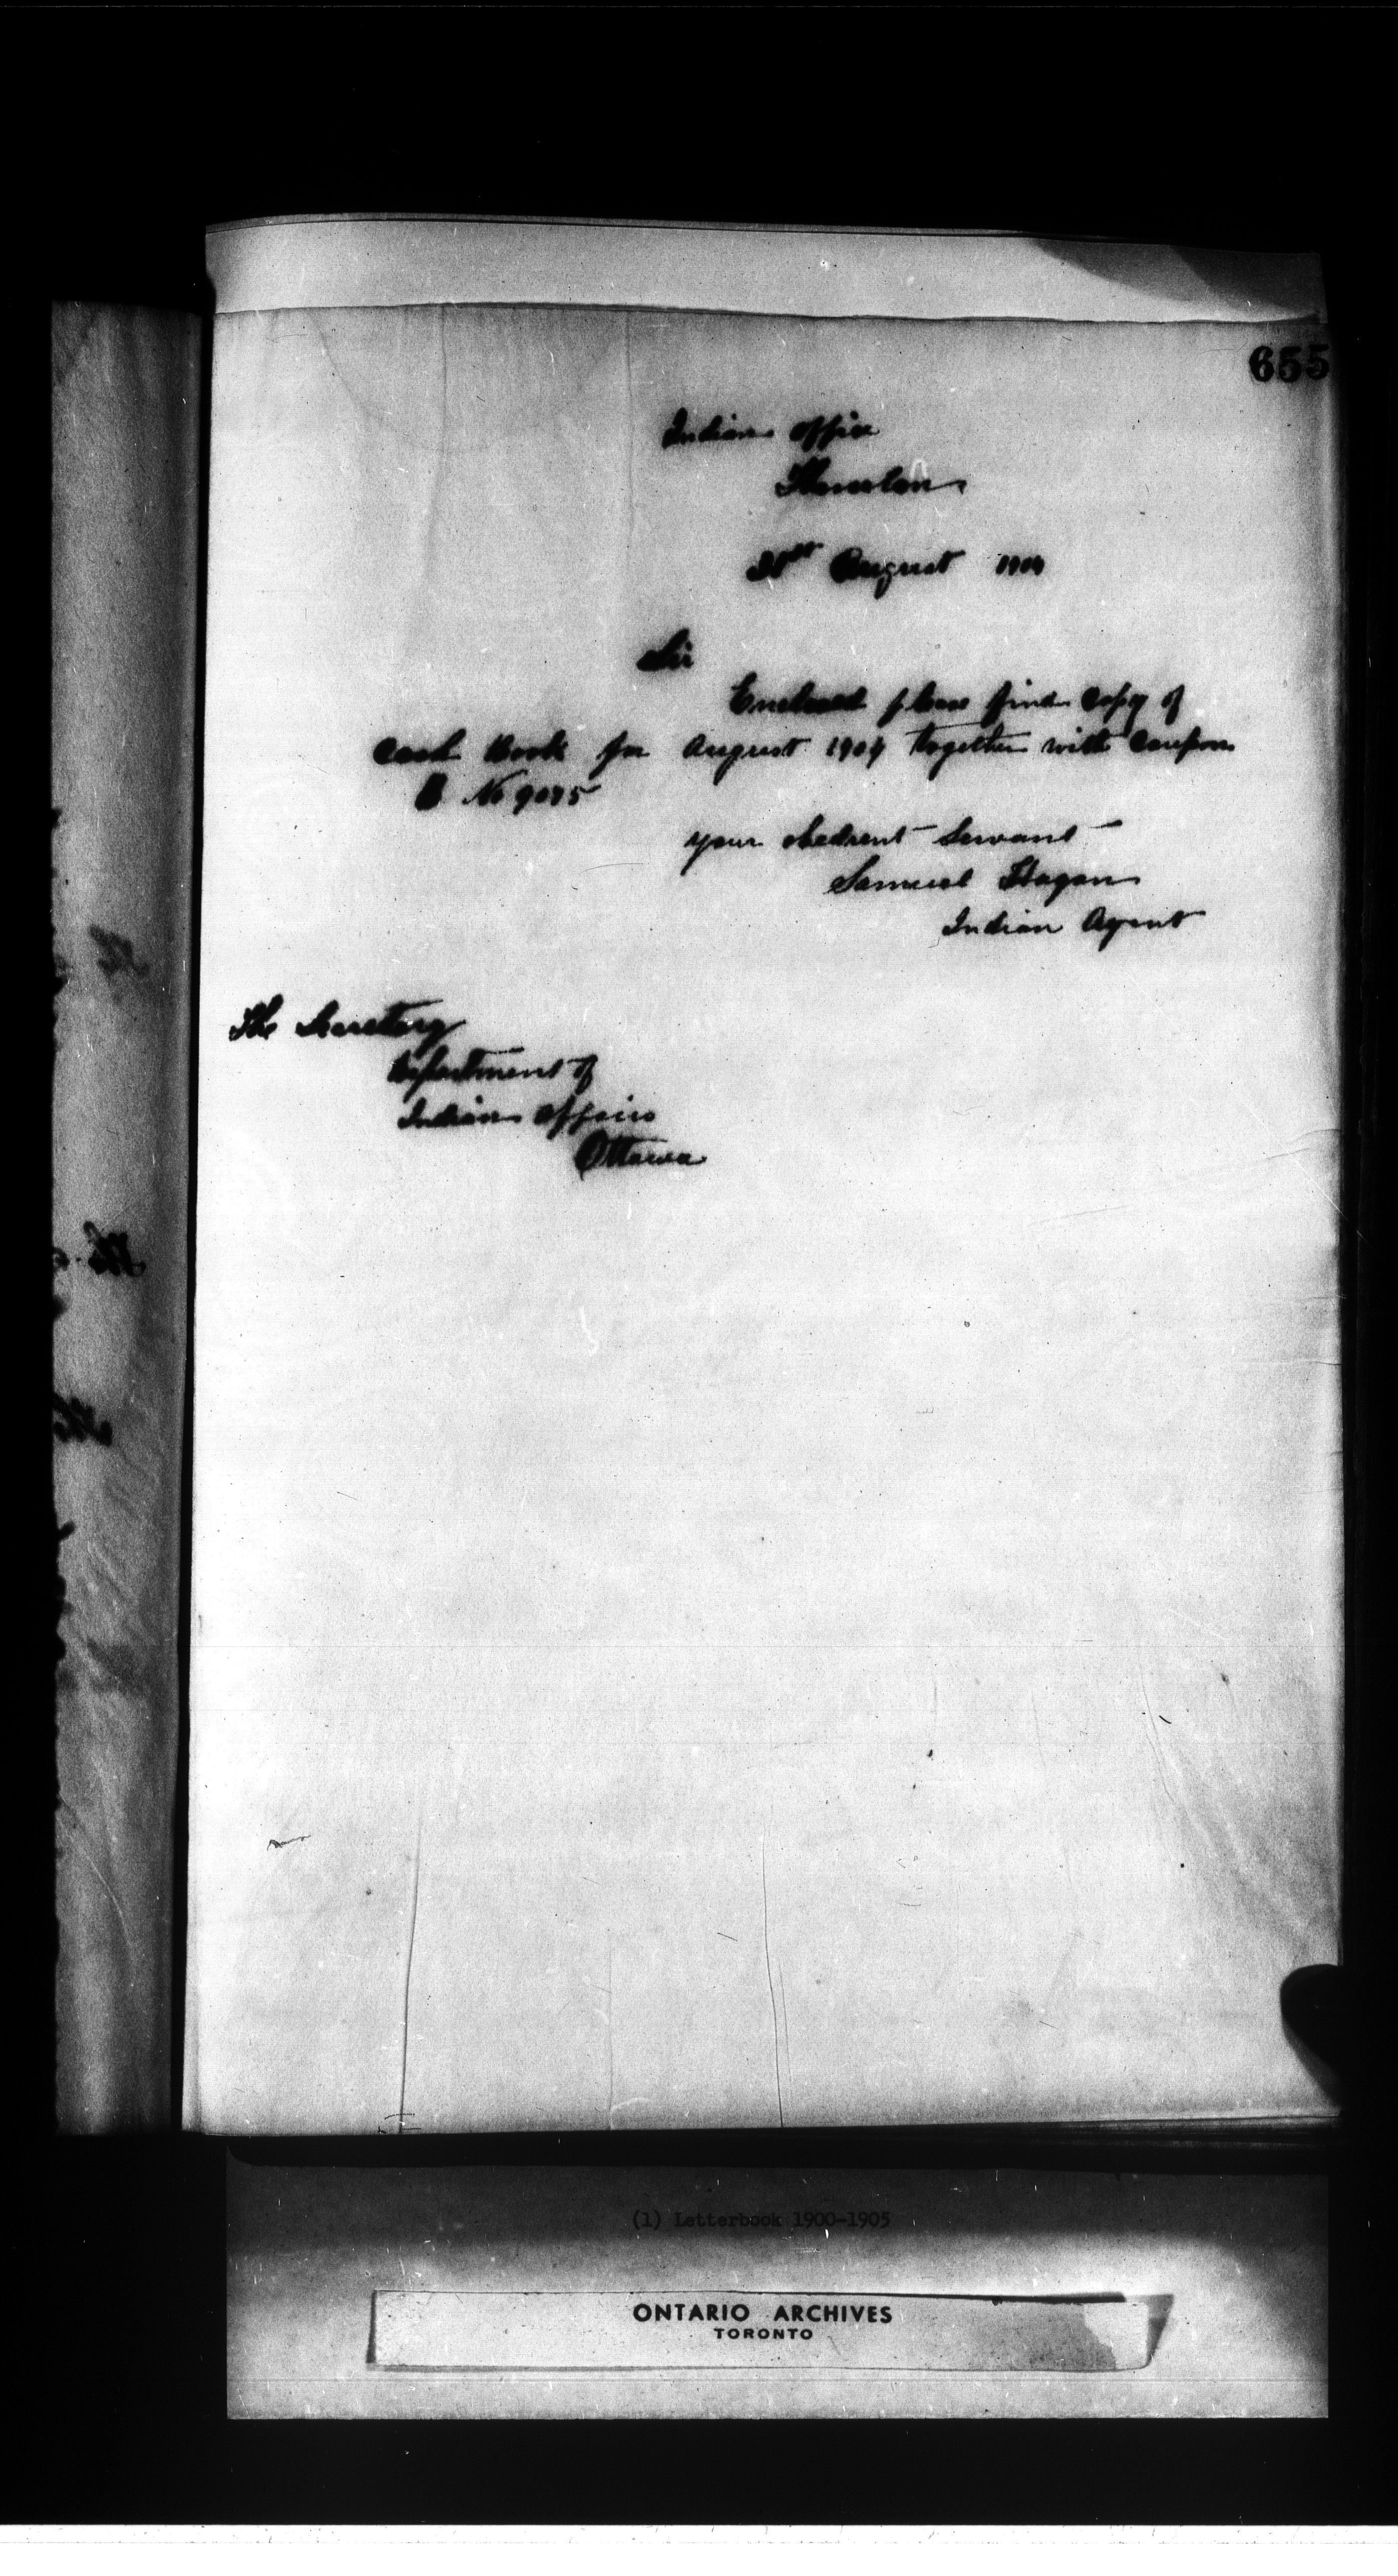 655
Indian Office
Thessalon
31st August 1904
Sir
Enclosed please find copy of
Cash Book for August 1904 together with Coupon
B No 9095
your obedient Servant
Samuel Hagan
Indian Agent
The Secretary
Department of
Indian Affairs
Ottawa
(1) Letterbook 1900-1905
ONTARIO ARCHIVES
TORONTO